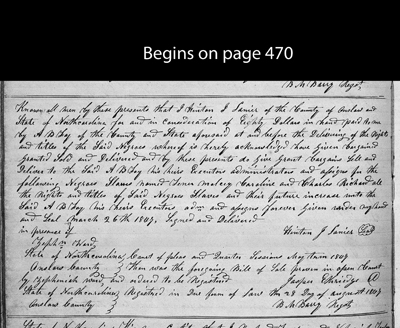 Begins on page 470
B. M. Barry Regst
Know all men by these presents that I Hinton J Lanier of the County of Onslow and
State of Northcarolina for and in consideration of Eighty Dollars in hand paid to me
by A B Day of the County and State aforesaid at and before the Delivering of the Rights
and titles of the Said Negroes whereof is hereby acknowledged have Given Bargained
Granted Sold and Delivered and by these presents do Give Grant Bargain Sell and
Deliver to the Said A B Day his heirs Executors administrators and assigns for the
following Negroes Slaves named Caroline and Charles all
the Rights and titles of Said Negroes Slaves and their future increase unto the
Said A B Day his heirs Executors adm and assigns forever Given under my hand
and Seal March 26th 1847. Signed and Delivered
in presence of Hinton J Lanier Seal
Zephn Ward
State of Northcarolina Court of pleas and Quarter Sessions May term 1847
Onslow County then was the foregoing Bill of Sale proven in open Court
by Zephaniah Ward and ordered to be Registered Jasper Etheridge
State of Northcarolina Registered in Due form of Law this 28 Day of august 1847
Onslow County B. M. Barry Regst